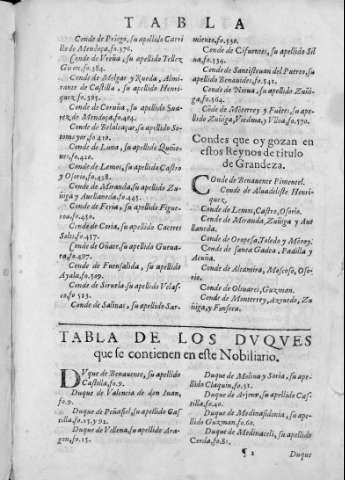 TABLA
Conde de Priego, su apellido Carri
llo de Mendoça, fo.376.
Conde de Vreña, su apellido Tellez
Giron, fo.384.
Conde de Melgar y Rueda, Almi-
rantes de Castilla, su apellido Henri-
quez, fo.395.
Conde de Coruña, su apellido Sua-
rez de Mendoça, fo.404.
Conde de Belalcaçar, su apellido So-
tomayor, fo.410.
Conde de Luna, su apellido Quiño-
nes, fo.420.
Conde de Lemos, su apellido Castro
y Osorio, fo.428.
Conde de Miranda, su apellido Zu
ñiga y Auellaneda, fo.445.
Conde de Feria, su apellido Figue-
roa, fo.450.
Conde de Coria, su apellido Caceres
Solis, fo.457.
Conde de Oñate, su apellido Gueua-
ra, fo.487.
Conde de Fuensalida, su apellido
Ayala, fo.509.
Conde de Siruela, su apellido Velas-
co, fo.523.
Conde de Salinas, su apellido Sar-
miento, fo.530.
Conde de Cifuentes, su apellido Sil
ua, fo.534.
Conde de Santisteuan del Puerto, su
apellido Benauides, fo.542.
Conde de Nieua, su apellido Zuñi-
ga, fo.564.
Conde de Monterrey y Fuẽtes, su ape-
llido Zuñiga, Viedma, y Vlloa, fo.570.
Condes que oy gozan en
estos Reynos de titulo
de Grandeza.
Conde de Benauente Pimentel.
Conde de Aluadeliste Henri-
quez.
Conde de Lemos, Castro, Osorio.
Conde de Miranda, Zuñiga y Aue
llaneda.
Conde de Oropesa, Toledo y Mõroy.
Conde de santa Gadea, Padilla y
Acuña.
Conde de Altamira, Moscoso, Oso-
rio.
Conde de Oliuares, Guzman.
Conde de Monterrey, Azeuedo, Zu
ñiga, y Fonseca.
TABLA DE LOS DVQVES
que se contienen en este Nobiliario.
DVque de Benauente, su apellido
Castilla, fo.9.
Duque de Valencia de don Iuan,
fo.9.
Duque de Peñafiel, su apellido Cas
tilla, fo.15. y 92.
Duque de Villena, su apellido Ara-
gon, fo.15.
Duque de Molina y Soria, su ape-
llido Claquin, fo.31.
Duque de Arjona, su apellido Cas-
tilla, fo.40.
Duque de Medinasidonia, su ape-
llido Guzman, fo.60.
Duque de Medinaceli, su apellido
Cerda, fo.81.
¶ 2
Duque